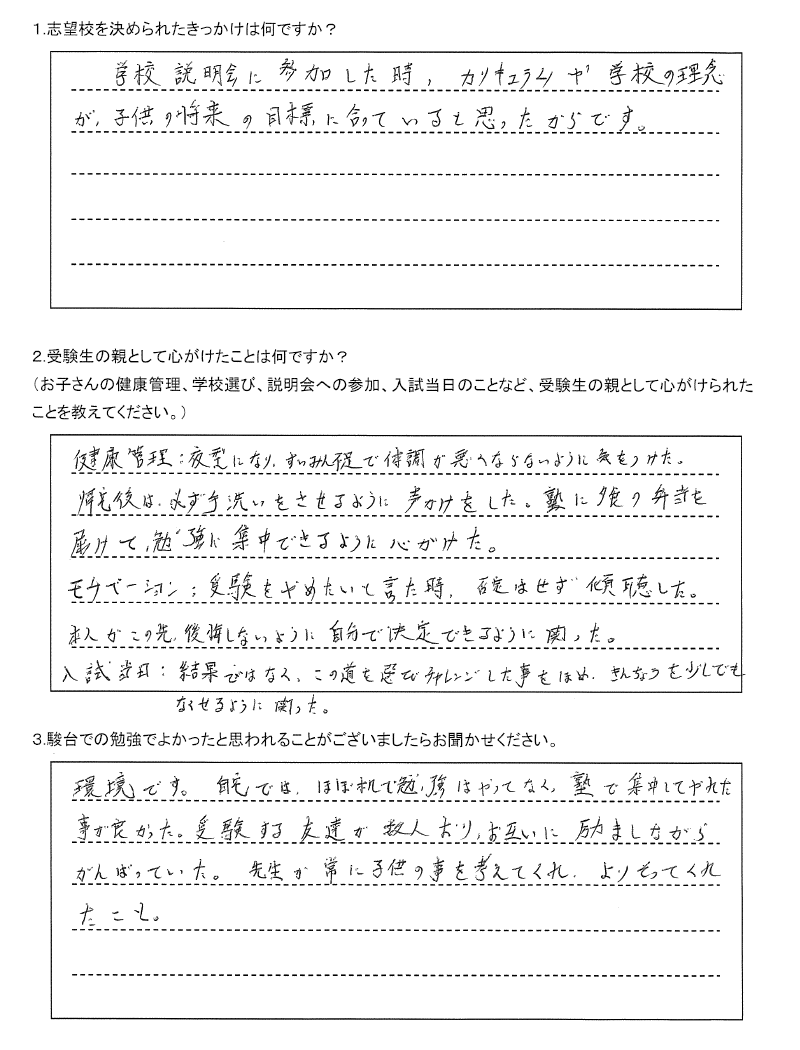 1.志望校を決められたきっかけは何ですか？
学校説明会に参加した時，カリキュラムや学校の理念
が，子供の将来の目標に合っていると思ったからです。
2.受験生の親として心がけたことは何ですか？
（お子さんの健康管理、学校選び、説明会への参加、入試当日のことなど、受験生の親として心がけられた
ことを教えてください。）
健康管理：夜型になり，すいみん不足で体調が悪くならないように気をつけた。
帰宅後は，必ず手洗いをさせるように声かけをした。塾に夕食の弁当を
届けて，勉強に集中できるように心がけた。
モチベーション：受験をやめたいと言た時，否定はせず傾聴した。
本人がこの先，後悔しないように自分で決定できるように関った。
入試当日：結果ではなく，この道を選びチャレンジした事をほめ，きんちょうを少しでも
なくせるように関った。
3.駿台での勉強でよかったと思われることがございましたらお聞かせください。
環境です。自宅では，ほぼ机で勉強はやってなく，塾で集中してやれた
事が良かった。受験する友達が数人おり，お互いに励ましながら
がんばっていた。先生が常に子供の事を考えてくれ，よりそってくれ
たこと。